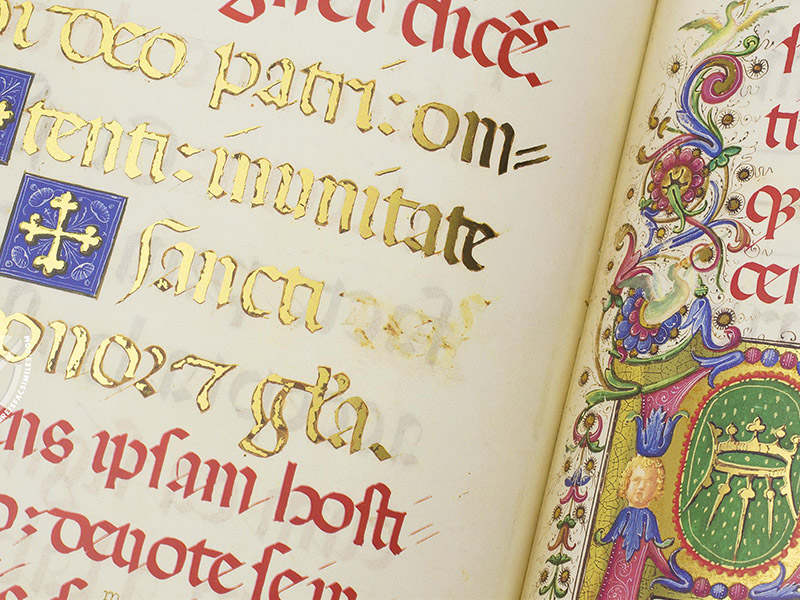 dicēs.
deo patri: om=
tenti: inunitate
ſancti
onoꝛ ⁊ gl̄a.
ns ipſam hoſti
deuote ſe